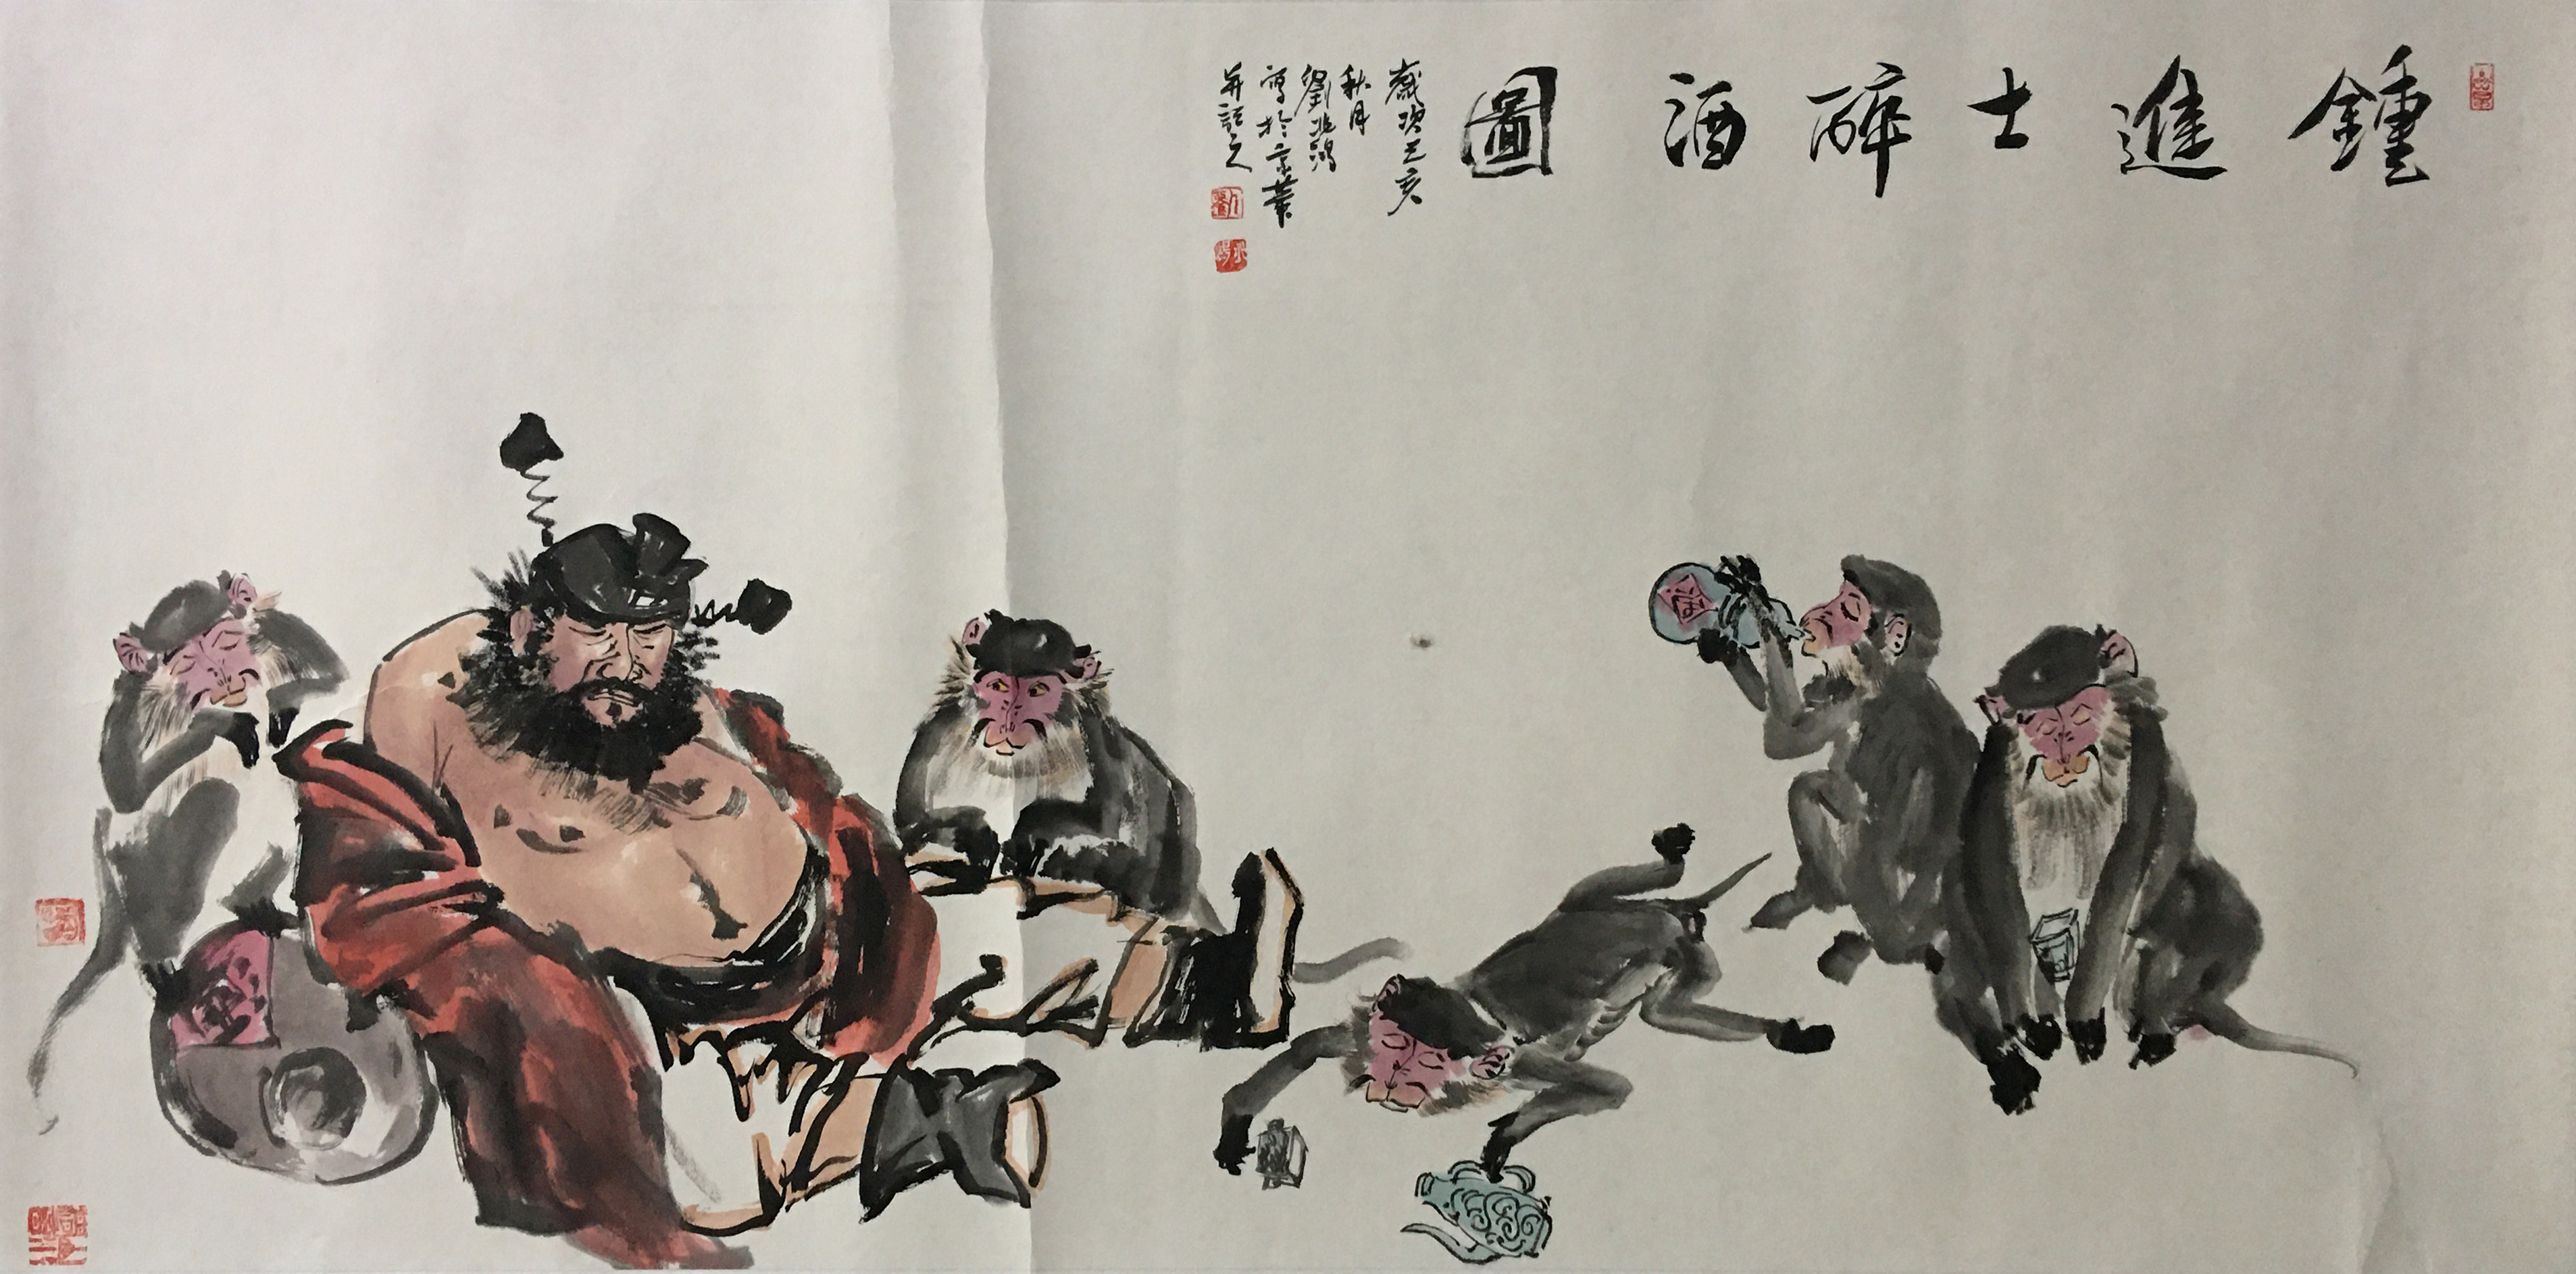 鍾進士醉酒圖
歲次己亥
秋月
劉兆鴻
寫於京華
并記之
酒
酒